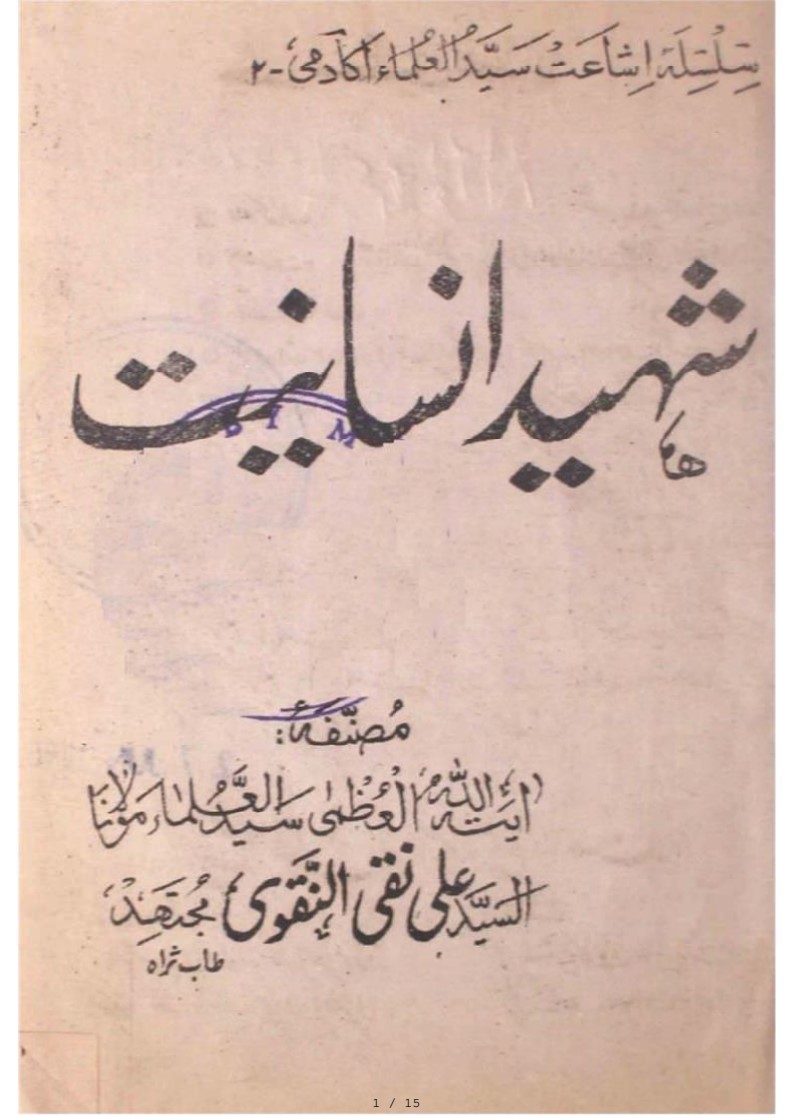 سِلْسِلَۂ اِشَاعَتْ سَیَّدُ الْعُلَمَاء اَکَادَمِی - ۲
شہیدِ انسانیت
M I
مُصَنَّفَۂ:
اٰیَتہ اللّٰہُ الْعُظْمٰی سَیَّدُ الْعُلَمَاء مَوْلَانَا
السَّیَّد علی نقی النَّقَوِی مُجْتَہِدْ
طاب ثراہ
1 / 15